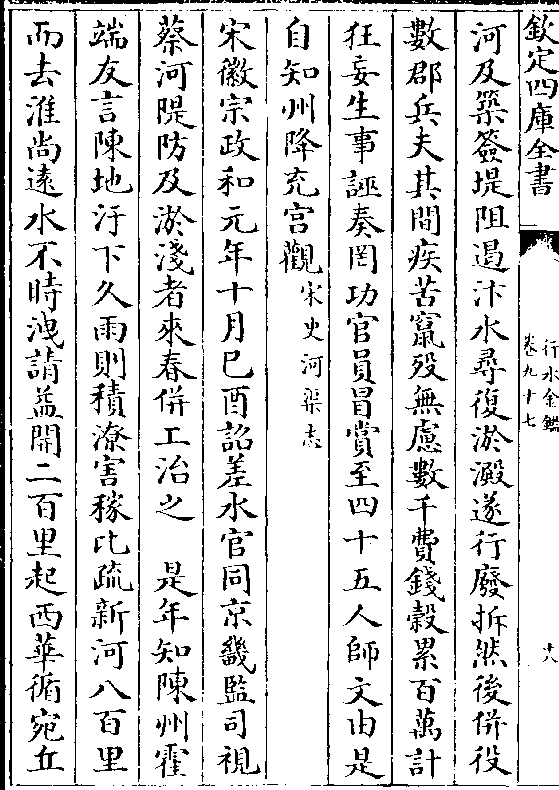 欽定四庫全書
行水金鑑
卷九十七
十八
河及築簽堤阻遏汴水尋復淤澱遂行廢拆然後併役
數郡兵夫其間疾苦竄歿無慮數千費錢穀累百萬計
狂妄生事誣奏罔功官員冒賞至四十五人師文由是
自知州降充宮觀宋史河渠志
宋徽宗政和元年十月己酉詔差水官同京畿監司視
蔡河隄防及淤淺者來春併工治之　是年知陳州霍
端友言陳地汙下久雨則積潦害稼比疏新河八百里
而去淮尚遠水不時洩請益開二百里起西華循宛丘